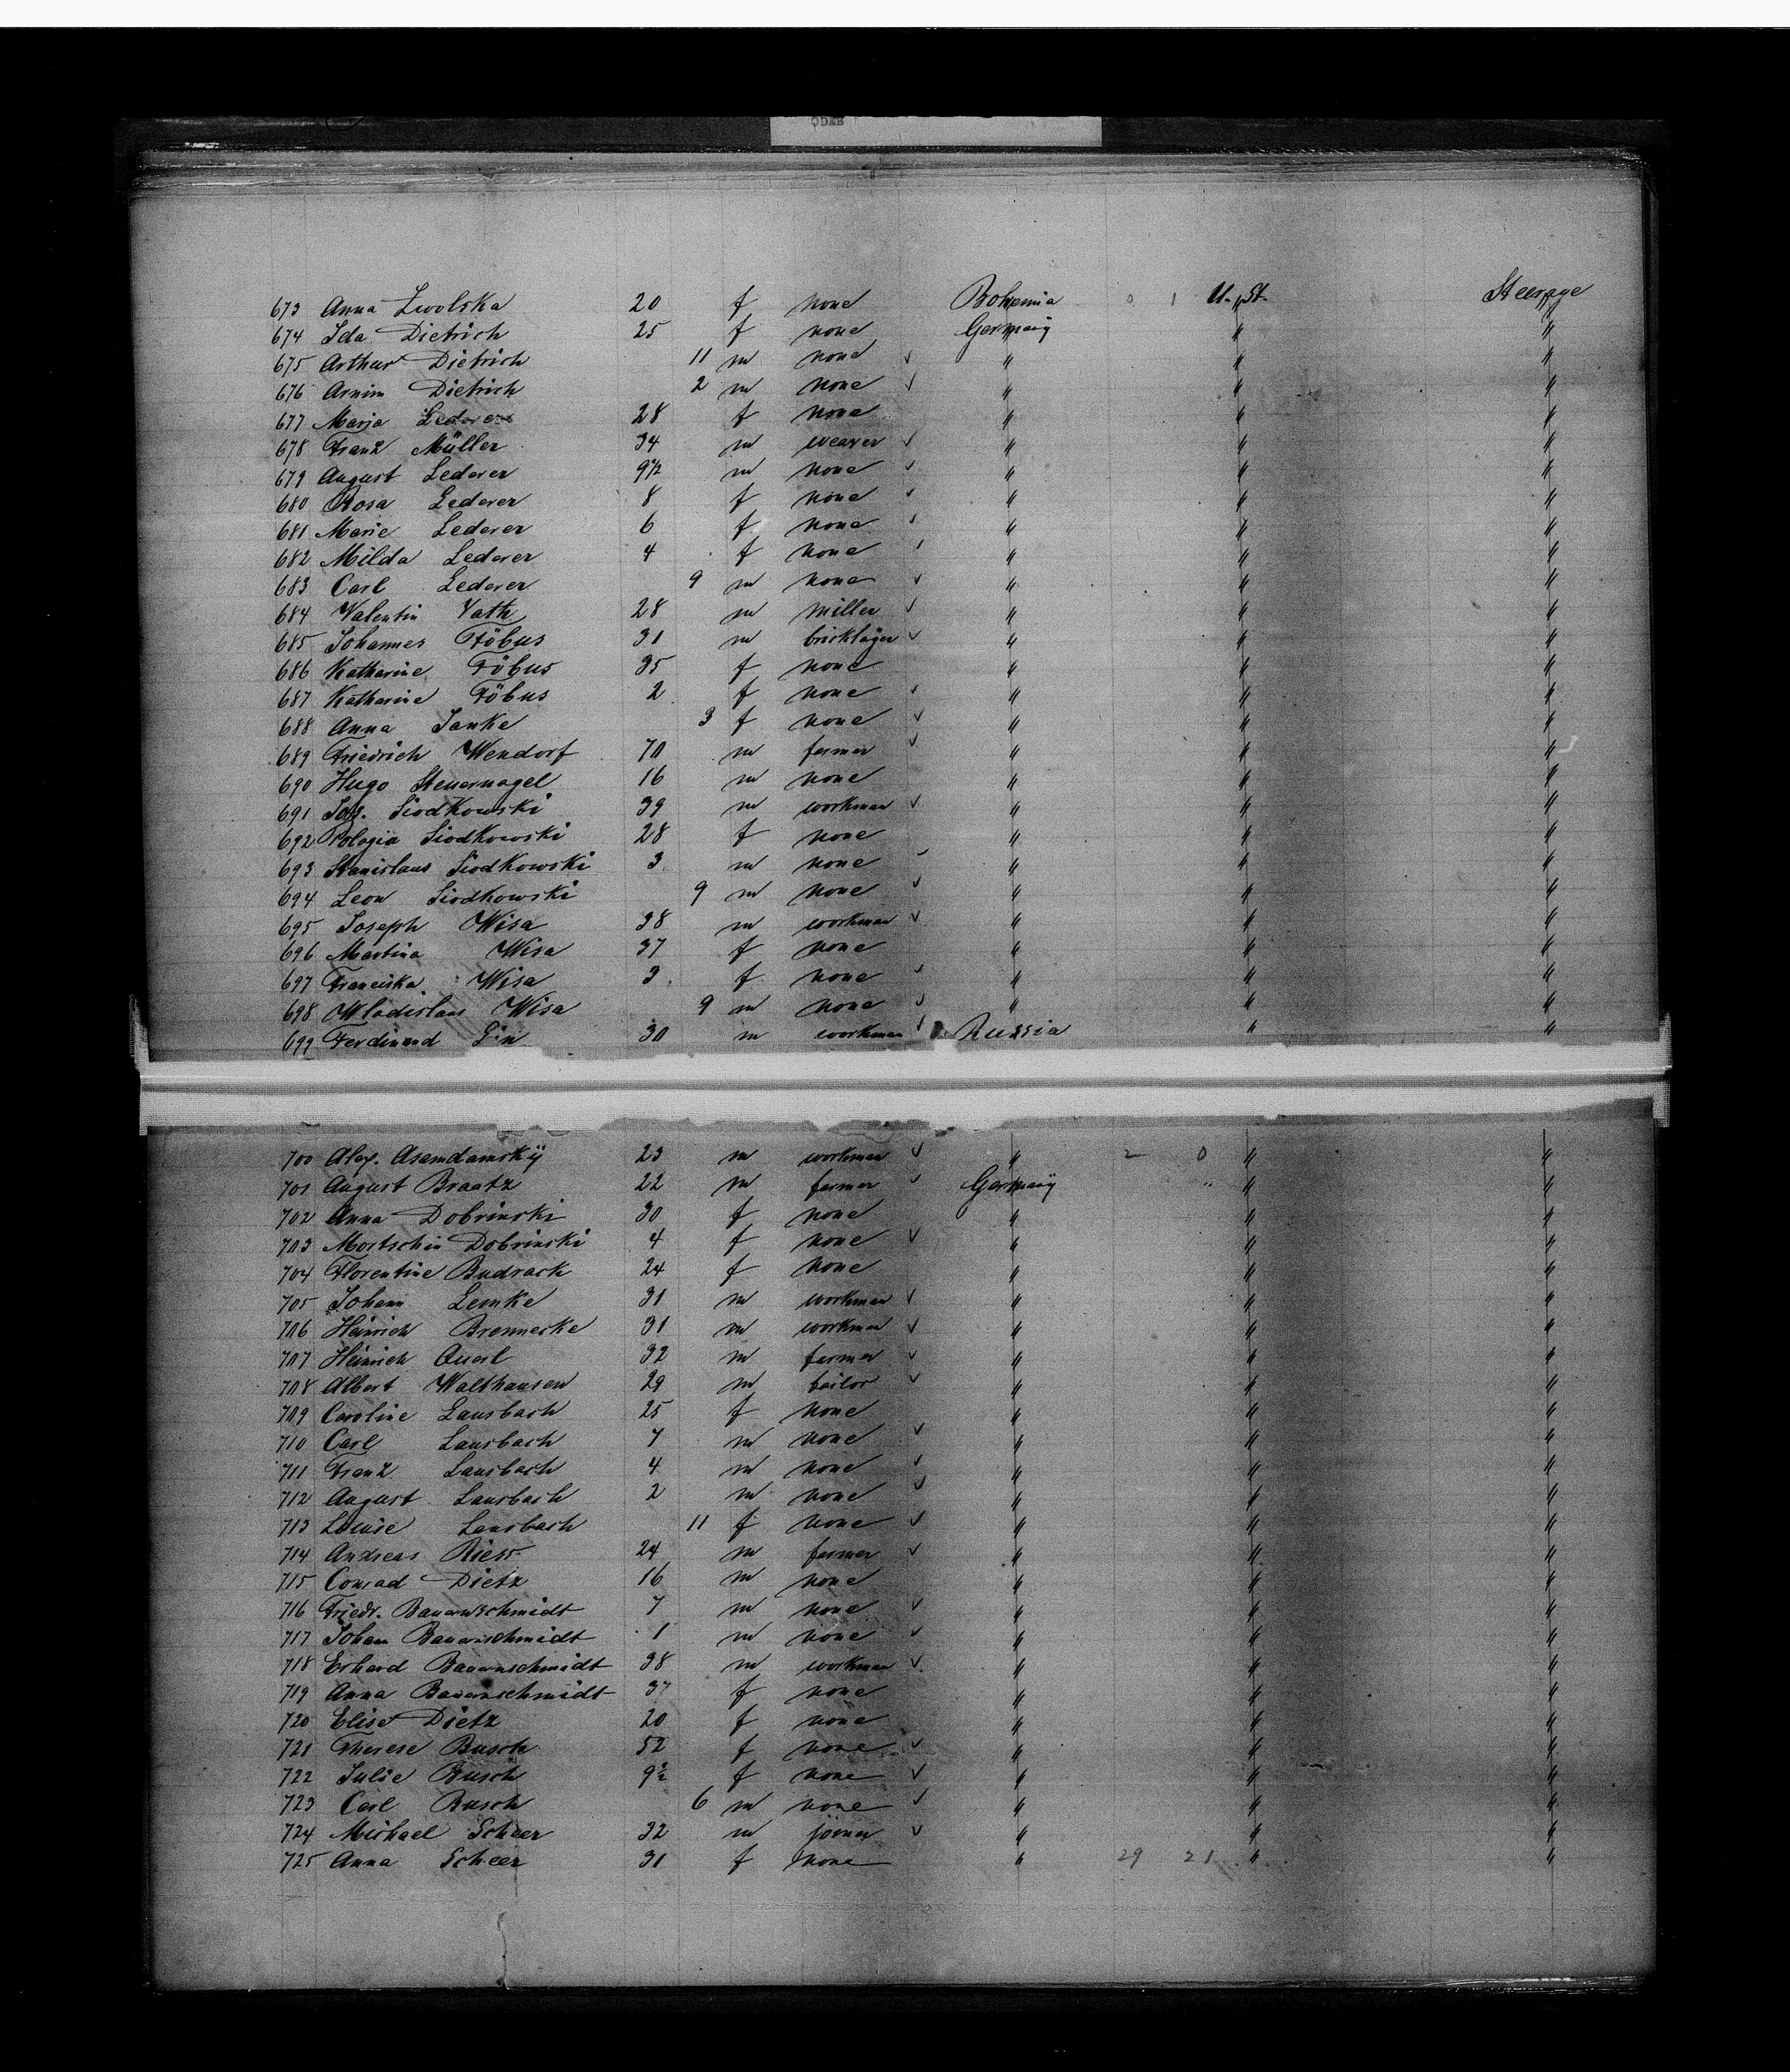 ODER
673 Anna Zwolska 20 f none Bohemia 0 1 U. St. Steerage
674 Ida Dietrich 25 f none Germany " "
675 Arthur Dietrich 11 m none ✓ " " "
676 Armin Dietrich 2 m none ✓ " " "
677 Marja Lederer 28 f none " " "
678 Franz Müller 34 m weaver ✓ " " "
679 August Lederer 9½ m none ✓ " " "
680 Rosa Lederer 8 f none ✓ " " "
681 Marie Lederer 6 f none ✓ " " "
682 Milda Lederer 4 f none ✓ " " "
683 Carl Lederer 9 m none ✓ " " "
684 Valentin Vath 28 m miller ✓ " " "
685 Johannes Föbus 31 m bricklayer ✓ " " "
686 Katharine Föbus 35 f none " " "
687 Katharine Föbus 2 f none ✓ " " "
688 Anna Janke 3 f none ✓ " " "
689 Friedrich Wendorf 70 m farmer ✓ " " "
690 Hugo Steuernagel 16 m none " " "
691 Jos. Siodkowski 39 m workman ✓ " " "
692 Pologia Siodkowski 28 f none " " "
693 Stanislaus Siodkowski 3 m none ✓ " " "
694 Leon Siodkowski 9 m none ✓ " " "
695 Joseph Wisa 38 m workman ✓ " " "
696 Martina Wisa 37 f none " " "
697 Franciska Wisa 3 f none ✓ " " "
698 Wladislaus Wisa 9 m none ✓ " " "
699 Ferdinand 30 m workman ✓ Russia " "
700 Alex. Asamdamskij 23 m workman ✓ " 2 0 " "
701 August Braatz 22 m farmer ✓ Germany " "
702 Anna Dobrinski 30 f none " " "
703 Mortschin Dobrinski 4 f none ✓ " " "
704 Florentine Budrack 24 f none " " "
705 Johann Lemke 31 m workman ✓ " " "
706 Heinrich Brennecke 31 m workman ✓ " " "
707 Heinrich Querl 32 m farmer ✓ " " "
708 Albert Walthausen 29 m tailor ✓ " " "
709 Caroline Lausbach 25 f none " " "
710 Carl Lausbach 7 m none ✓ " " "
711 Franz Lausbach 4 m none ✓ " " "
712 August Lausbach 2 m none ✓ " " "
713 Louise Lausbach 11 f none ✓ " " "
714 Andreas Riess 24 m farmer ✓ " " "
715 Conrad Dietz 16 m none " " "
716 Friedr. Bauernschmidt 7 m none ✓ " " "
717 Johann Bauernschmidt 1 m none ✓ " " "
718 Erhard Bauernschmidt 38 m workman ✓ " " "
719 Anna Bauernschmidt 37 f none " " "
720 Elise Dietz 20 f none " " "
721 Therese Busch 52 f none ✓ " " "
722 Julie Busch 9½ f none ✓ " " "
723 Carl Busch 6 m none ✓ " " "
724 Michael Scheer 32 m joiner ✓ " " "
725 Anna Scheer 31 f none " 29 21 " "